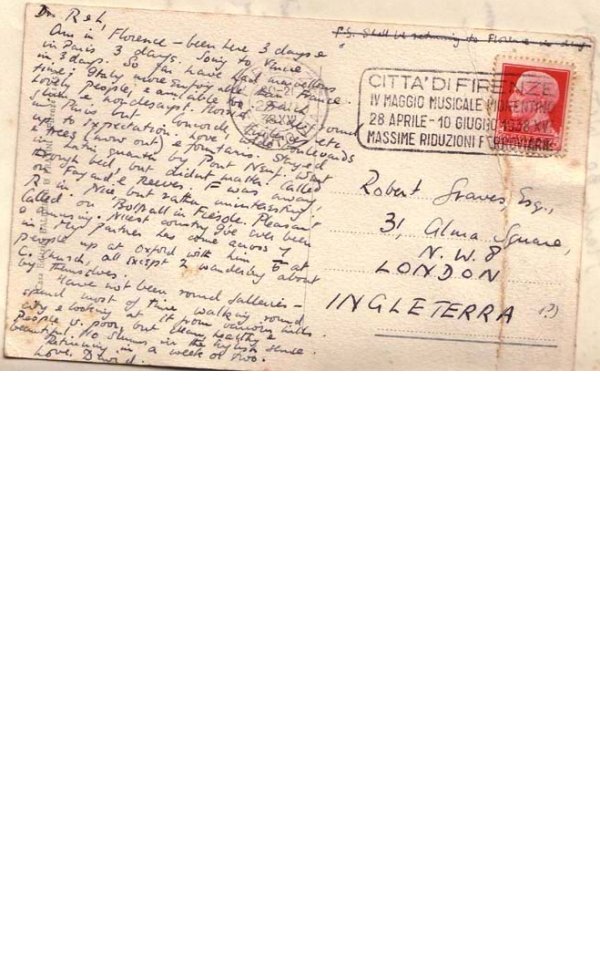 Dr. R & L,
Am in Florence – been here 3 days &
in Paris 3 days. Going to Venice
in 3 days. So far have had marvellous
time; Italy more enjoyable than France.
Lovely people, & amiable too. French
slick & nondescript. Horrid smelly round
up Paris but Concorde, Eiffel etc
up to expectation. Love wide boulevards
& trees (now out) & fountains. Stayed
in Latin quarter by Pont Neuf. Went
through bed, but didnt matter. Called
on & Reeves. F was away,
R in. Nice but rather uninteresting.
Called on in Fiesole. Pleasant
& amusing. Nicest country Ive ever been
in. partner has come across 7
people up at Oxford with him at
C. Church, all except 2 wandering about
by themselves.
Have not been round galleries –
spend most of time walking round
city & looking at it from various hills
People v. poor, but clean, healthy &
beautiful. No slums in the English sense.
Returning in a week or two.
Love, David.
P.S. Shall be returning to Florence
CITTA' DI FIRENZE
IV MAGGIO MUSICALE FIORENTINO
28 APRILE - 10 GIUGNO 1938 XVI
MASSIME RIDUZIONI FERROVIARIE
Robert Graves, Esq.,
31, Alma Square,
N.W.8
LONDON
INGLETERRA